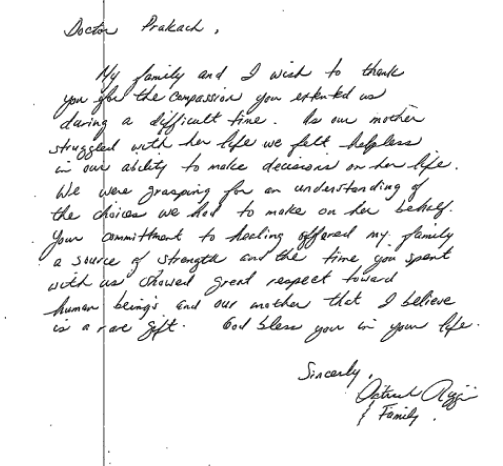 Doctor Prakash,
My family and I wish to thank
you for the compassion you extented us
during a difficult time. As our mother
struggled with her life we felt helpless
in our ability to make decisions on her life.
We were grasping for an understanding of
the choices we had to make on her behalf.
Your committment to healing offered my family
a source of strength and the time you spent
with us showed great respect toward
human beings and our mother that I believe
is a rare gift. God bless you in your life.
Sincerly,
& Family.